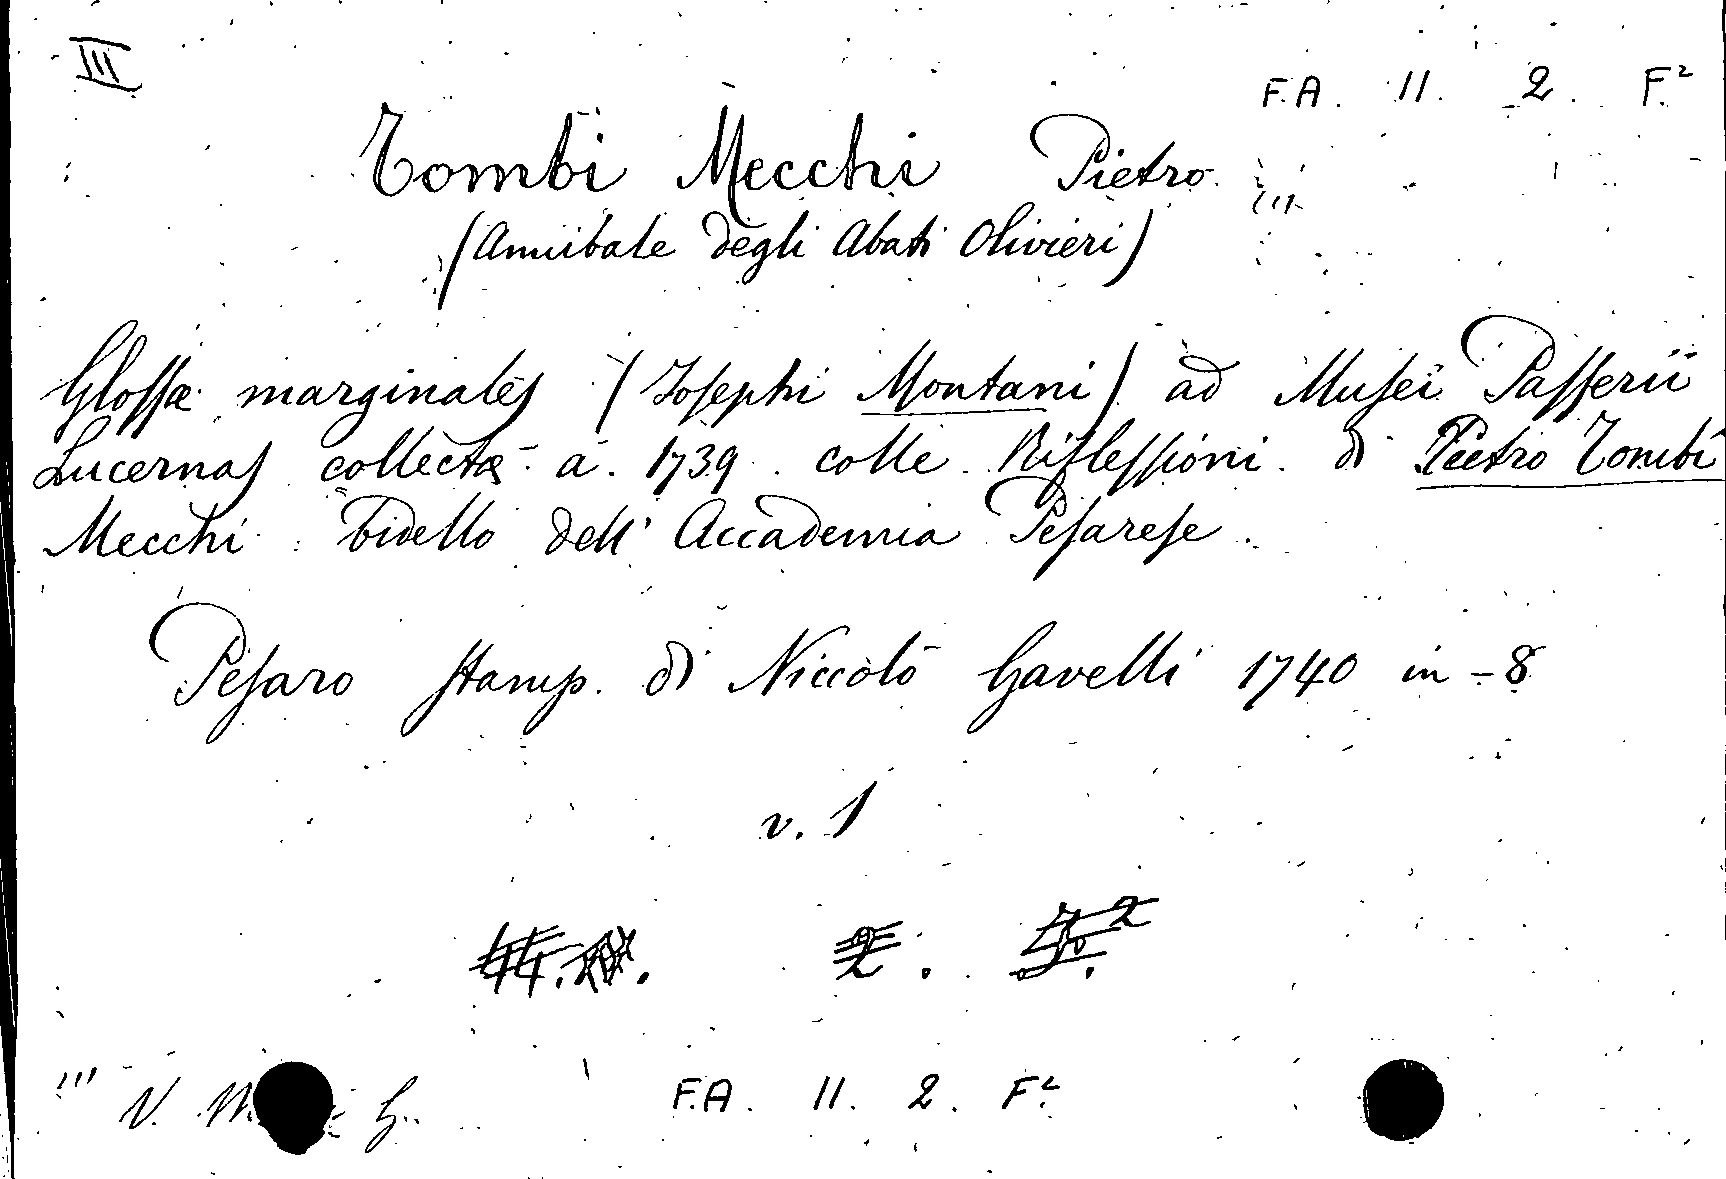 III
F.A. 11. 2. F.²
Tombi Mecchi Pietro
(Annibale degli Abati Olivieri)
Glossæ marginales (Josephi Montani) ad Musei Passerii
Lucernas collectæ a. 1739. colle Riflessioni di Pietro Tombi
Mecchi bidello dell' Accademia Pesarese.
Pesaro stamp. di Niccolò Gavelli 1740 in-8
v. 1
2. F.²
V. G.
F.A. 11. 2. F.²